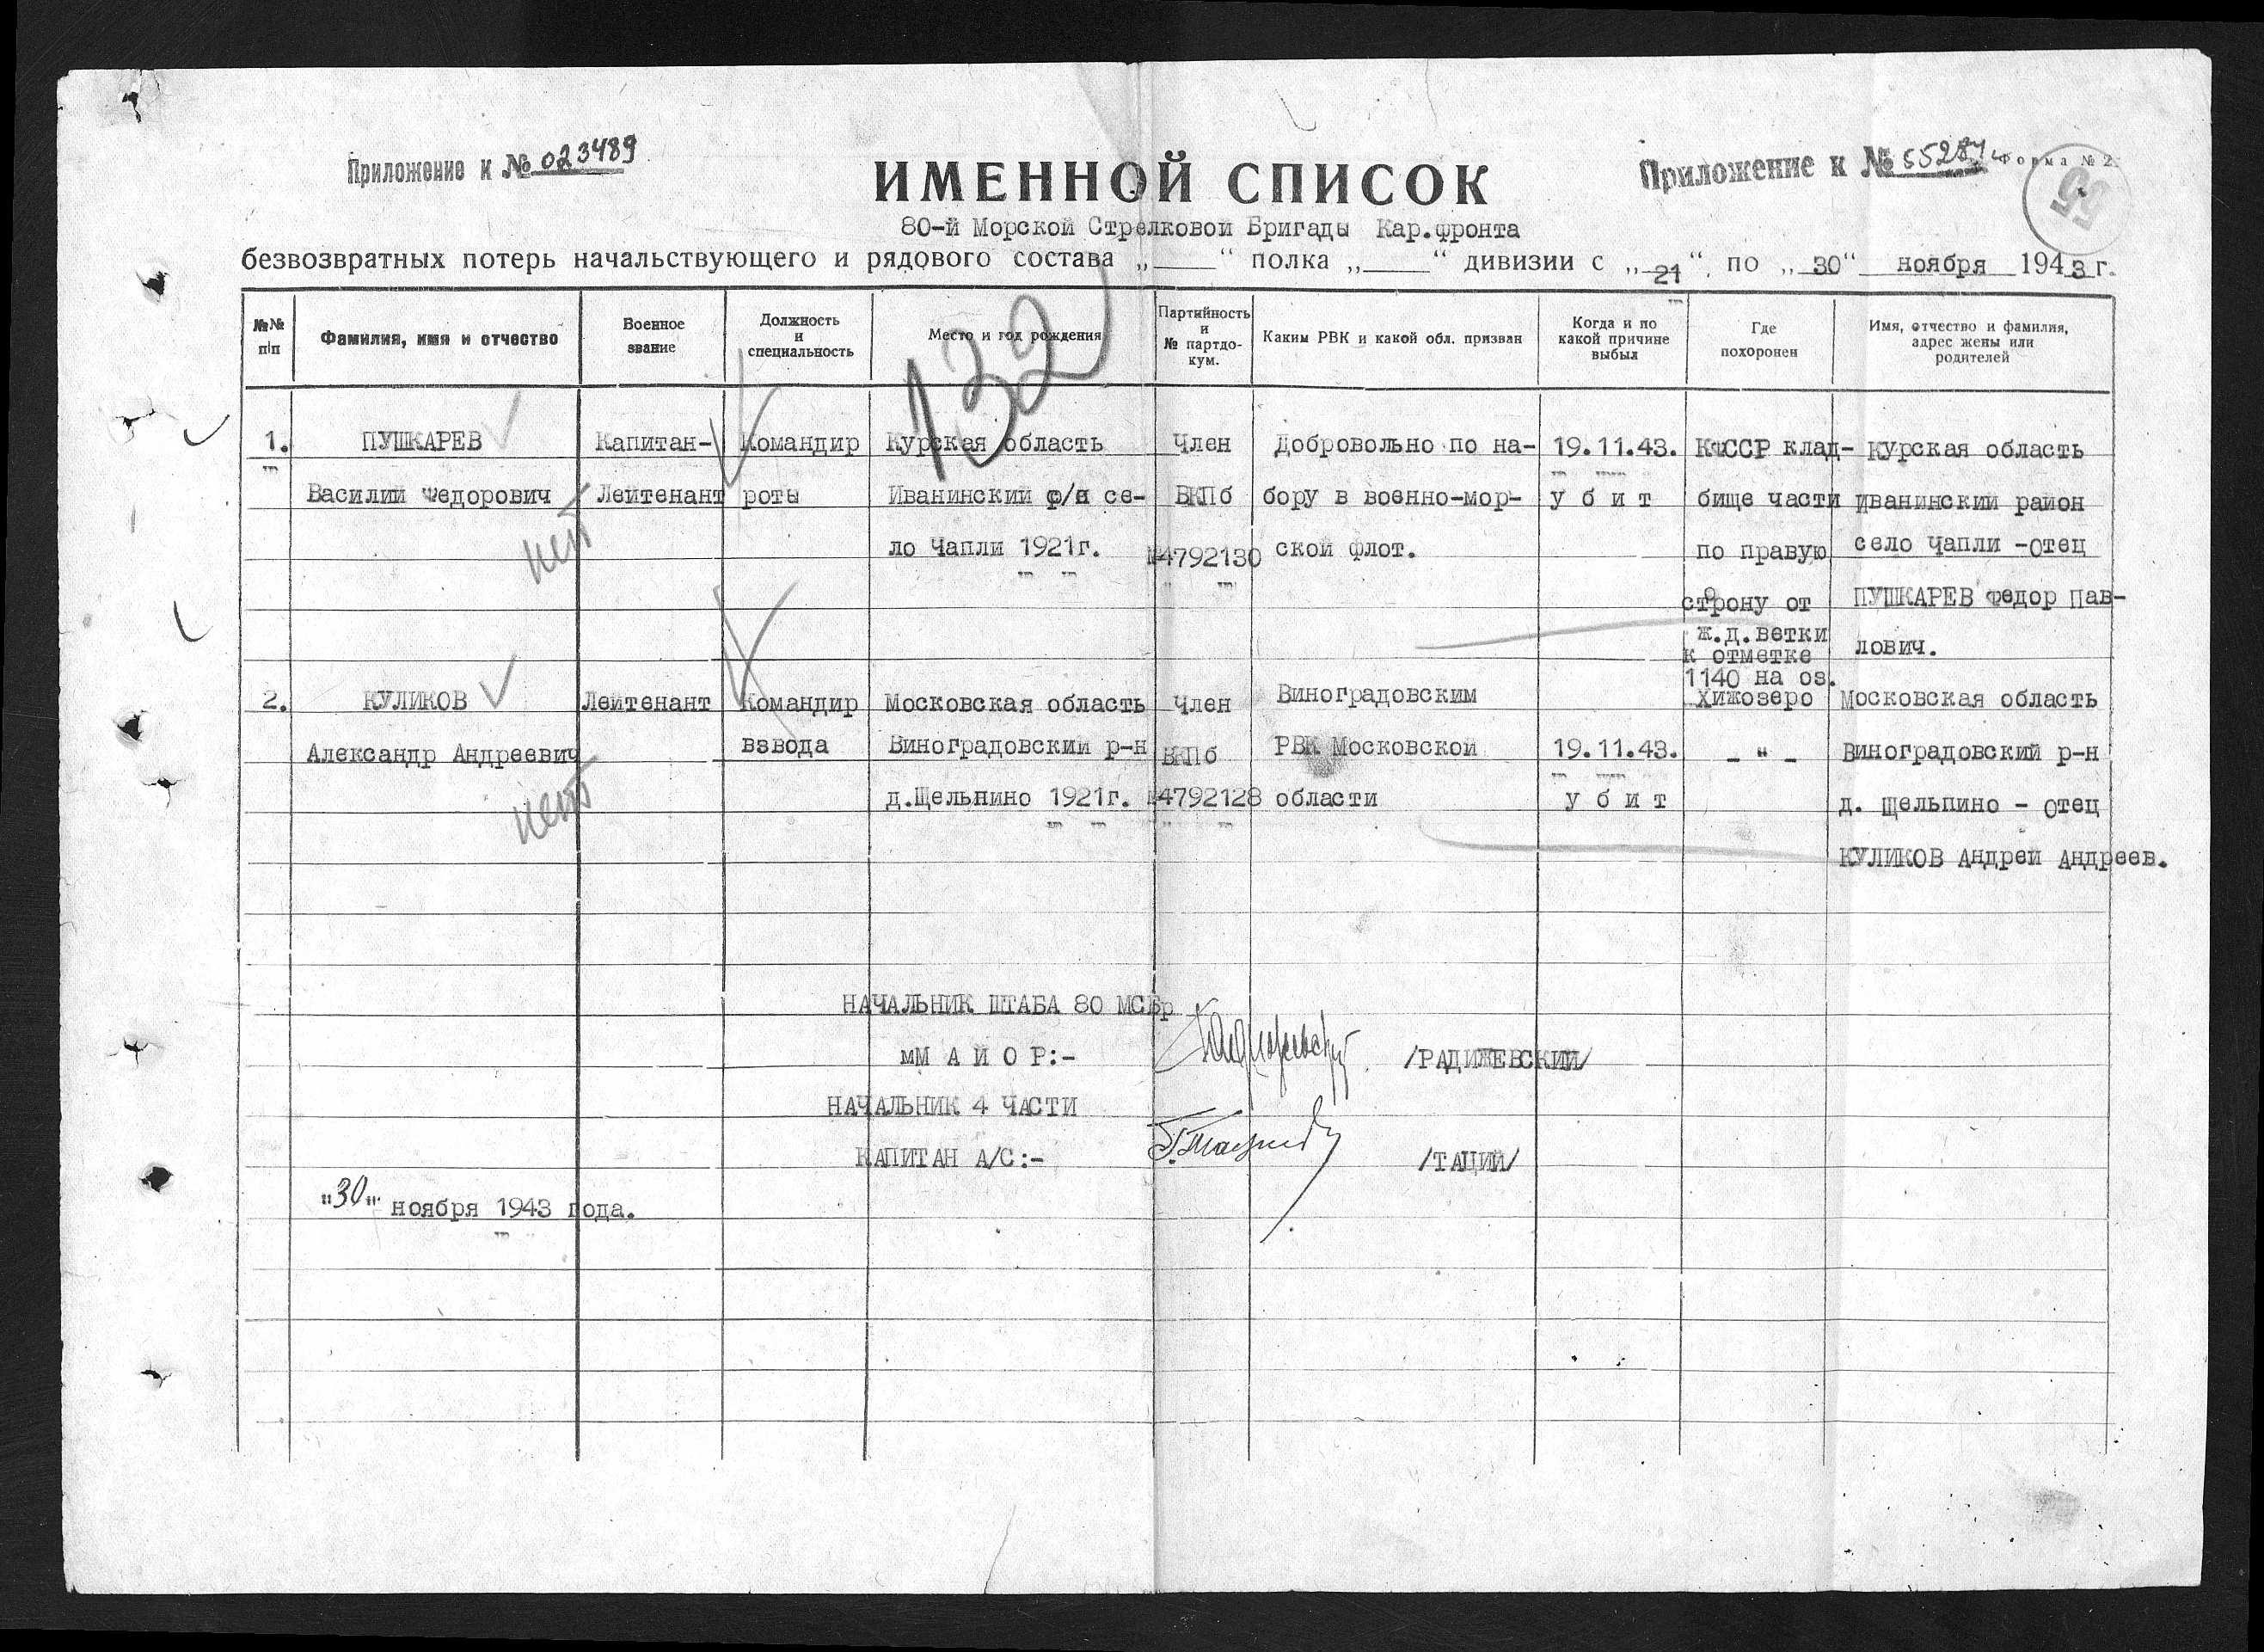 Приложение к № 023489
Приложение к № 55284с
Форма № 2
55
ИМЕННОЙ СПИСОК
80-й Морской Стрелковой Бригады Кар.фронта
безвозвратных потерь начальствующего и рядового состава „____“ полка „____“ дивизии с „21“ по „30“ ноября 1943 г.
132
№№ п/п
Фамилия, имя и отчество
Военное звание
Должность и специальность
Место и год рождения
Партийность и № партдокум.
Каким РВК и какой обл. призван
Когда и по какой причине выбыл
Где похоронен
Имя, отчество и фамилия, адрес жены или родителей
1. ПУШКАРЕВ Капитан- Командир Курская область Член Добровольно по на- 19.11.43. КФССР клад- Курская область
Василий Федорович Лейтенант роты Иванинский р/н се- ВКПб бору в военно-мор- у б и т бище части Иванинский район
нет
ло Чапли 1921г. №4792130 ской флот. по правую село Чапли -отец
строну от ПУШКАРЕВ Федор Пав-
ж.д.ветки
к отметке лович.
1140 на оз.
2. КУЛИКОВ Лейтенант Командир Московская область Член Виноградовским Хижозеро Московская область
Александр Андреевич взвода Виноградовский р-н ВКПб РВК Московской 19.11.43. - " - Виноградовский р-н
нет
д.Щельпино 1921г. №4792128 области у б и т д. Щельпино - отец
КУЛИКОВ Андрей Андреев.
НАЧАЛЬНИК ШТАБА 80 МСБр
мМ А Й О Р:- /РАДИЖЕВСКИЙ/
НАЧАЛЬНИК 4 ЧАСТИ
КАПИТАН А/С:- /ТАЦИЙ/
"30" ноября 1943 года.